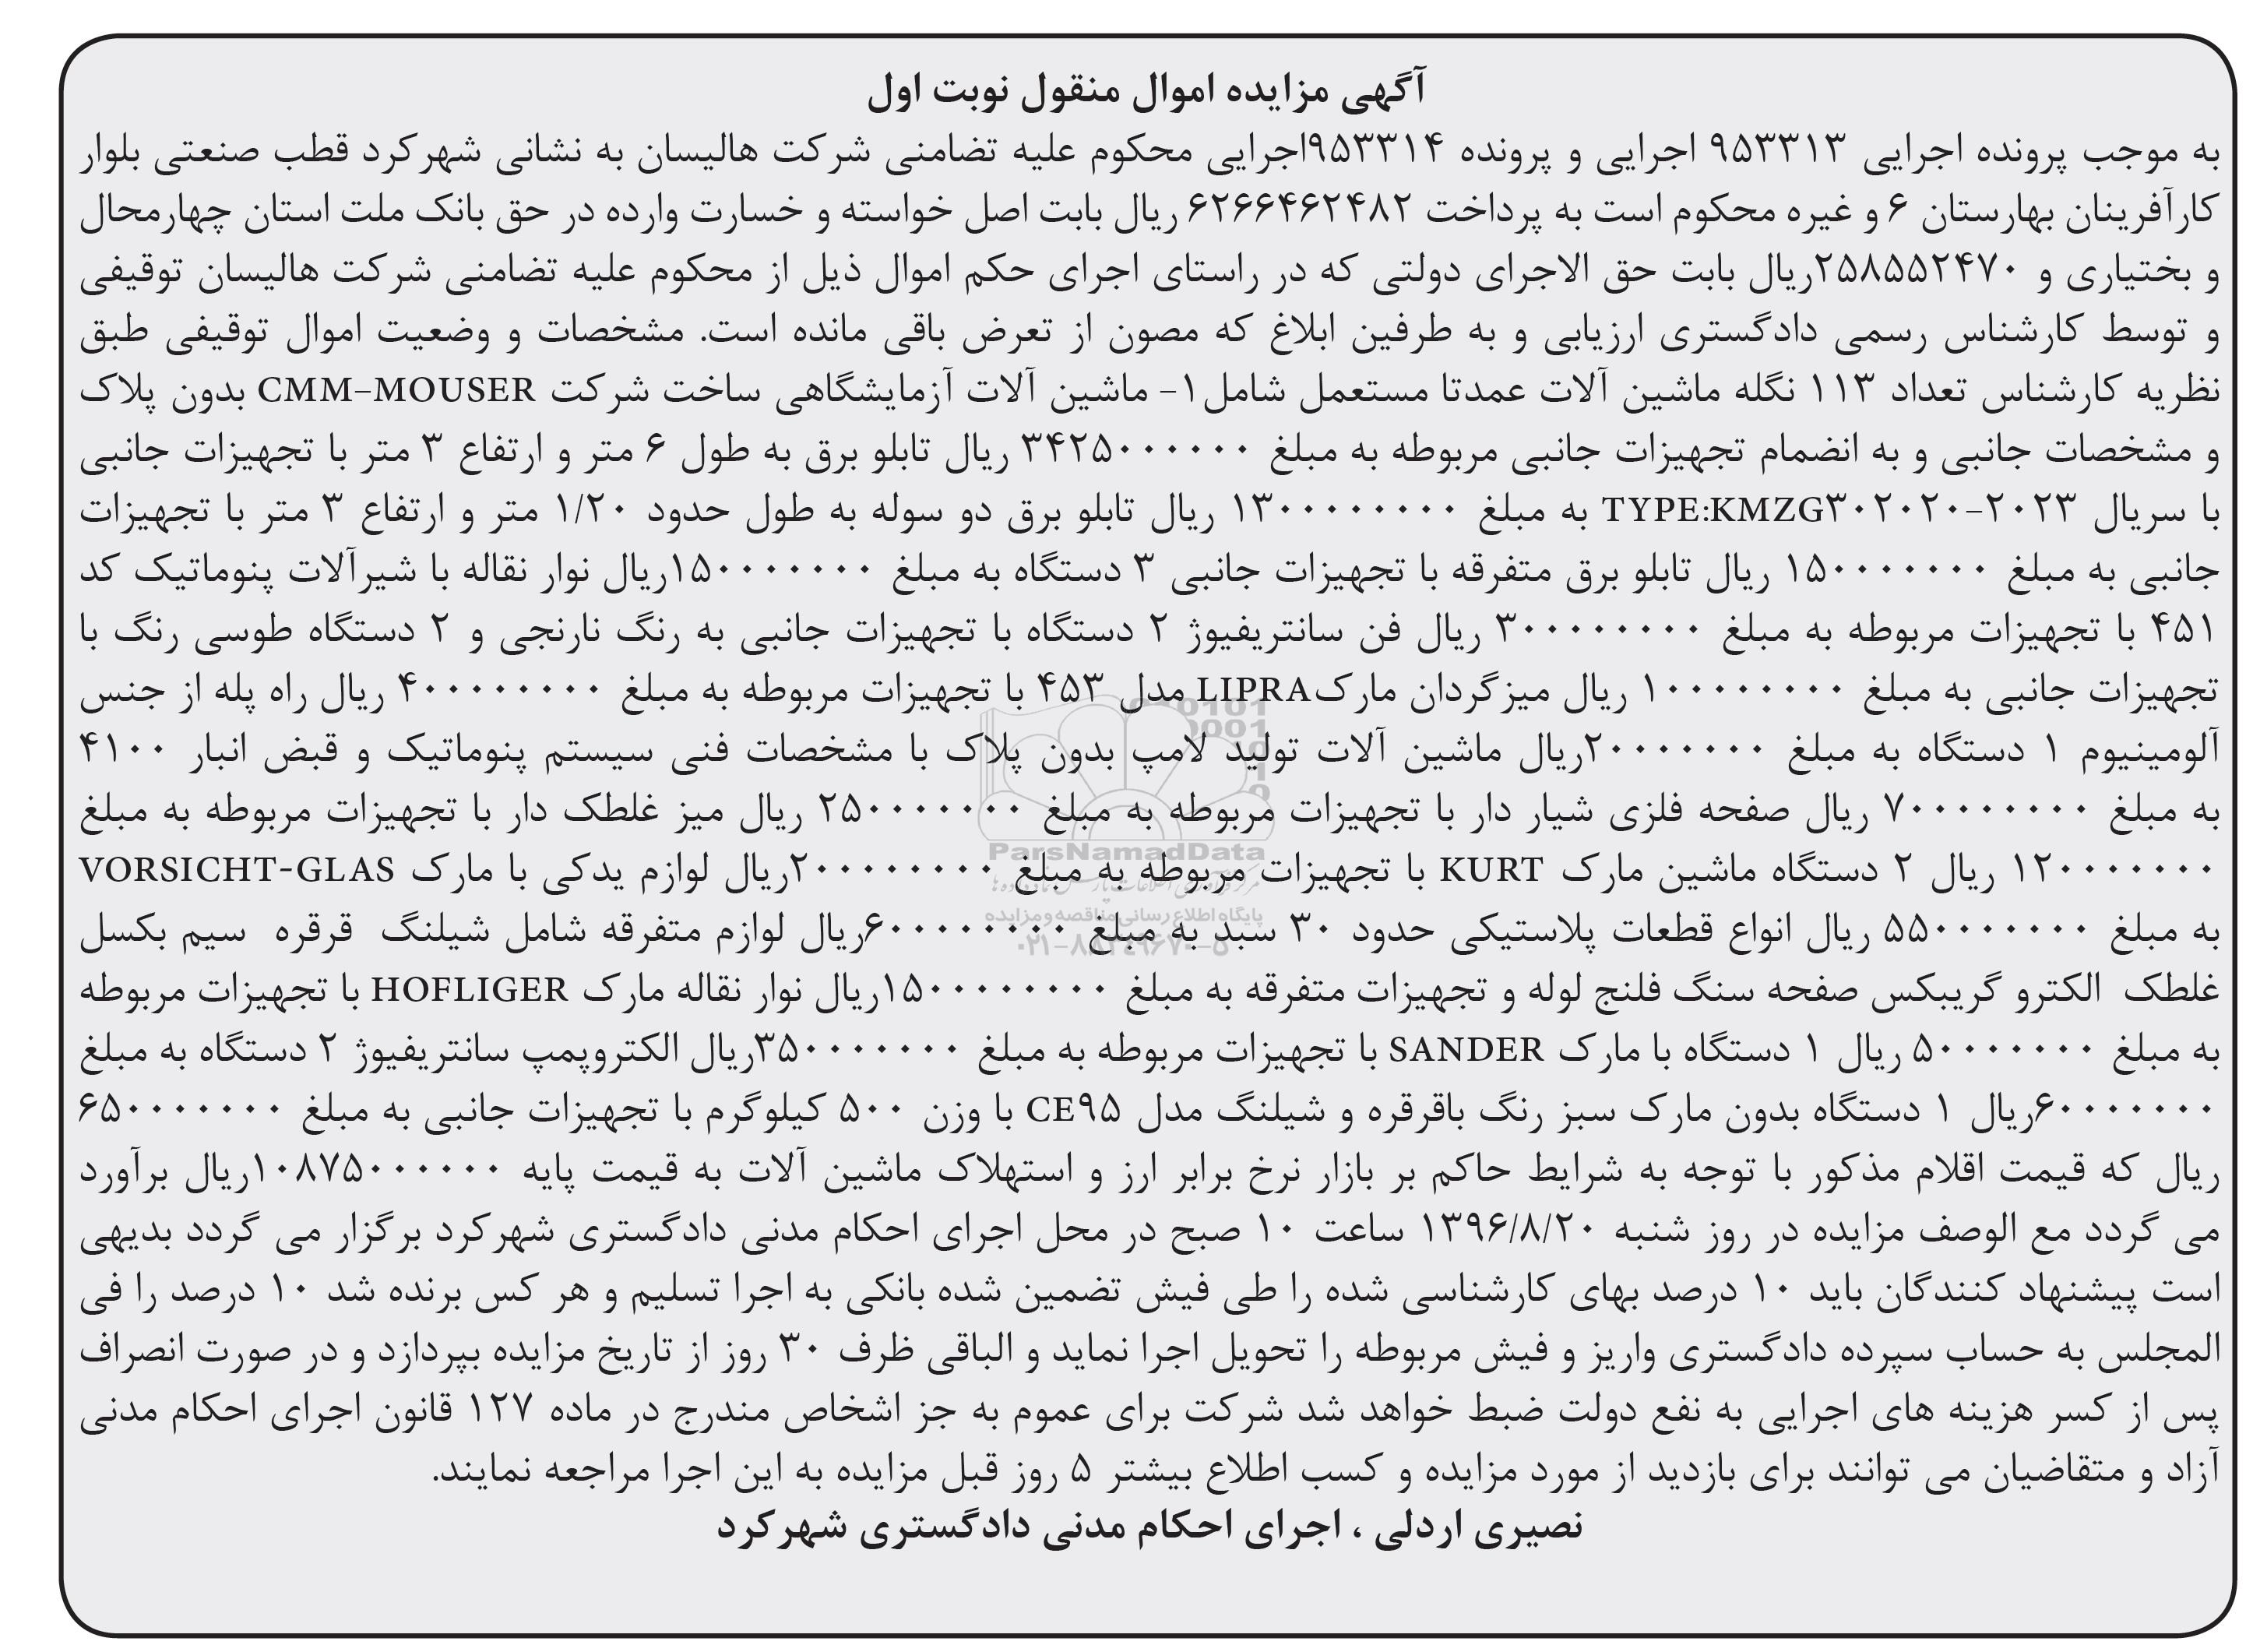 آگهی مزایده اموال منقول نوبت اول
به موجب پرونده اجرایی ۹۵۳۳۱۳ اجرایی و پرونده ۹۵۳۳۱۴اجرایی محکوم علیه تضامنی شرکت هالیسان به نشانی شهرکرد قطب صنعتی بلوار
کارآفرینان بهارستان ۶ و غیره محکوم است به پرداخت ۶۲۶۶۴۶۲۴۸۲ ریال بابت اصل خواسته و خسارت وارده در حق بانک ملت استان چهارمحال
و بختیاری و ۲۵۸۵۵۲۴۷۰ریال بابت حق الاجرای دولتی که در راستای اجرای حکم اموال ذیل از محکوم علیه تضامنی شرکت هالیسان توقیفی
و توسط کارشناس رسمی دادگستری ارزیابی و به طرفین ابلاغ که مصون از تعرض باقی مانده است. مشخصات و وضعیت اموال توقیفی طبق
نظریه کارشناس تعداد ۱۱۳ نگله ماشین آلات عمدتا مستعمل شامل۱- ماشین آلات آزمایشگاهی ساخت شرکت CMM-MOUSER بدون پلاک
و مشخصات جانبی و به انضمام تجهیزات جانبی مربوطه به مبلغ ۳۴۲۵۰۰۰۰۰۰ ریال تابلو برق به طول ۶ متر و ارتفاع ۳ متر با تجهیزات جانبی
با سریال TYPE:KMZG۳۰۲۰۲۰-۲۰۲۳ به مبلغ ۱۳۰۰۰۰۰۰۰۰ ریال تابلو برق دو سوله به طول حدود ۱/۲۰ متر و ارتفاع ۳ متر با تجهیزات
جانبی به مبلغ ۱۵۰۰۰۰۰۰۰ ریال تابلو برق متفرقه با تجهیزات جانبی ۳ دستگاه به مبلغ ۱۵۰۰۰۰۰۰۰ریال نوار نقاله با شیرآلات پنوماتیک کد
۴۵۱ با تجهیزات مربوطه به مبلغ ۳۰۰۰۰۰۰۰۰ ریال فن سانتریفیوژ ۲ دستگاه با تجهیزات جانبی به رنگ نارنجی و ۲ دستگاه طوسی رنگ با
تجهیزات جانبی به مبلغ ۱۰۰۰۰۰۰۰۰ ریال میزگردان مارکLIPRA مدل ۴۵۳ با تجهیزات مربوطه به مبلغ ۴۰۰۰۰۰۰۰۰ ریال راه پله از جنس
آلومینیوم ۱ دستگاه به مبلغ ۲۰۰۰۰۰۰۰ریال ماشین آلات تولید لامپ بدون پلاک با مشخصات فنی سیستم پنوماتیک و قبض انبار ۴۱۰۰
به مبلغ ۷۰۰۰۰۰۰۰۰ ریال صفحه فلزی شیار دار با تجهیزات مربوطه به مبلغ ۲۵۰۰۰۰۰۰۰ ریال میز غلطک دار با تجهیزات مربوطه به مبلغ
۱۲۰۰۰۰۰۰۰ ریال ۲ دستگاه ماشین مارک KURT با تجهیزات مربوطه به مبلغ ۲۰۰۰۰۰۰۰۰ریال لوازم یدکی با مارک VORSICHT-GLAS
به مبلغ ۵۵۰۰۰۰۰۰۰ ریال انواع قطعات پلاستیکی حدود ۳۰ سبد به مبلغ ۶۰۰۰۰۰۰۰۰ریال لوازم متفرقه شامل شیلنگ قرقره سیم بکسل
غلطک الکترو گریبکس صفحه سنگ فلنج لوله و تجهیزات متفرقه به مبلغ ۱۵۰۰۰۰۰۰۰۰ریال نوار نقاله مارک HOFLIGER با تجهیزات مربوطه
به مبلغ ۵۰۰۰۰۰۰۰ ریال ۱ دستگاه با مارک SANDER با تجهیزات مربوطه به مبلغ ۳۵۰۰۰۰۰۰۰ریال الکتروپمپ سانتریفیوژ ۲ دستگاه به مبلغ
۶۰۰۰۰۰۰۰ریال ۱ دستگاه بدون مارک سبز رنگ باقرقره و شیلنگ مدل CE۹۵ با وزن ۵۰۰ کیلوگرم با تجهیزات جانبی به مبلغ ۶۵۰۰۰۰۰۰۰
ریال که قیمت اقلام مذکور با توجه به شرایط حاکم بر بازار نرخ برابر ارز و استهلاک ماشین آلات به قیمت پایه ۱۰۸۷۵۰۰۰۰۰۰ریال برآورد
می گردد مع الوصف مزایده در روز شنبه ۱۳۹۶/۸/۲۰ ساعت ۱۰ صبح در محل اجرای احکام مدنی دادگستری شهرکرد برگزار می گردد بدیهی
است پیشنهاد کنندگان باید ۱۰ درصد بهای کارشناسی شده را طی فیش تضمین شده بانکی به اجرا تسلیم و هر کس برنده شد ۱۰ درصد را فی
المجلس به حساب سپرده دادگستری واریز و فیش مربوطه را تحویل اجرا نماید و الباقی ظرف ۳۰ روز از تاریخ مزایده بپردازد و در صورت انصراف
پس از کسر هزینه های اجرایی به نفع دولت ضبط خواهد شد شرکت برای عموم به جز اشخاص مندرج در ماده ۱۲۷ قانون اجرای احکام مدنی
آزاد و متقاضیان می توانند برای بازدید از مورد مزایده و کسب اطلاع بیشتر ۵ روز قبل مزایده به این اجرا مراجعه نمایند.
نصیری اردلی ، اجرای احکام مدنی دادگستری شهرکرد
ParsNamadData
پایگاه اطلاع رسانی مناقصه و مزایده